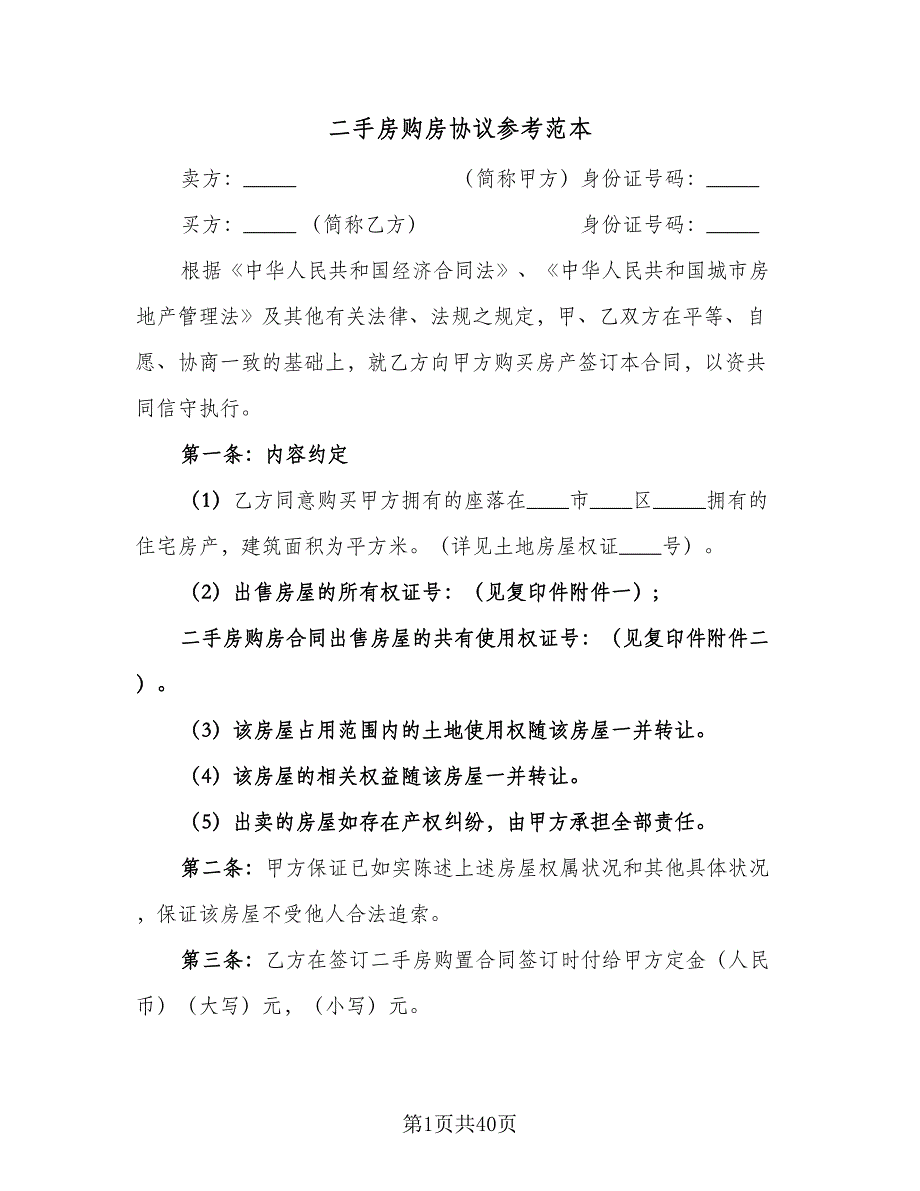 二手房购房协议参考范本
卖方：_____ （简称甲方）身份证号码：_____
买方：_____（简称乙方） 身份证号码：_____
根据《中华人民共和国经济合同法》、《中华人民共和国城市房
地产管理法》及其他有关法律、法规之规定，甲、乙双方在平等、自
愿、协商一致的基础上，就乙方向甲方购买房产签订本合同，以资共
同信守执行。
第一条：内容约定
（1）乙方同意购买甲方拥有的座落在____市____区_____拥有的
住宅房产，建筑面积为平方米。（详见土地房屋权证____号）。
（2）出售房屋的所有权证号：（见复印件附件一）；
二手房购房合同出售房屋的共有使用权证号：（见复印件附件二
）。
（3）该房屋占用范围内的土地使用权随该房屋一并转让。
（4）该房屋的相关权益随该房屋一并转让。
（5）出卖的房屋如存在产权纠纷，由甲方承担全部责任。
第二条：甲方保证已如实陈述上述房屋权属状况和其他具体状况
，保证该房屋不受他人合法追索。
第三条：乙方在签订二手房购置合同签订时付给甲方定金（人民
币）（大写）元，（小写）元。
第1页共40页